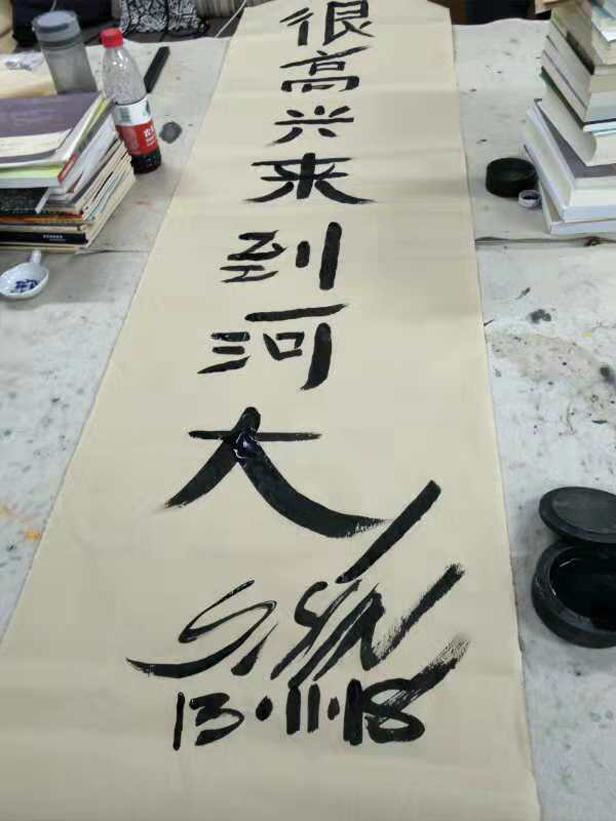 很高兴来到河大
13·11·18